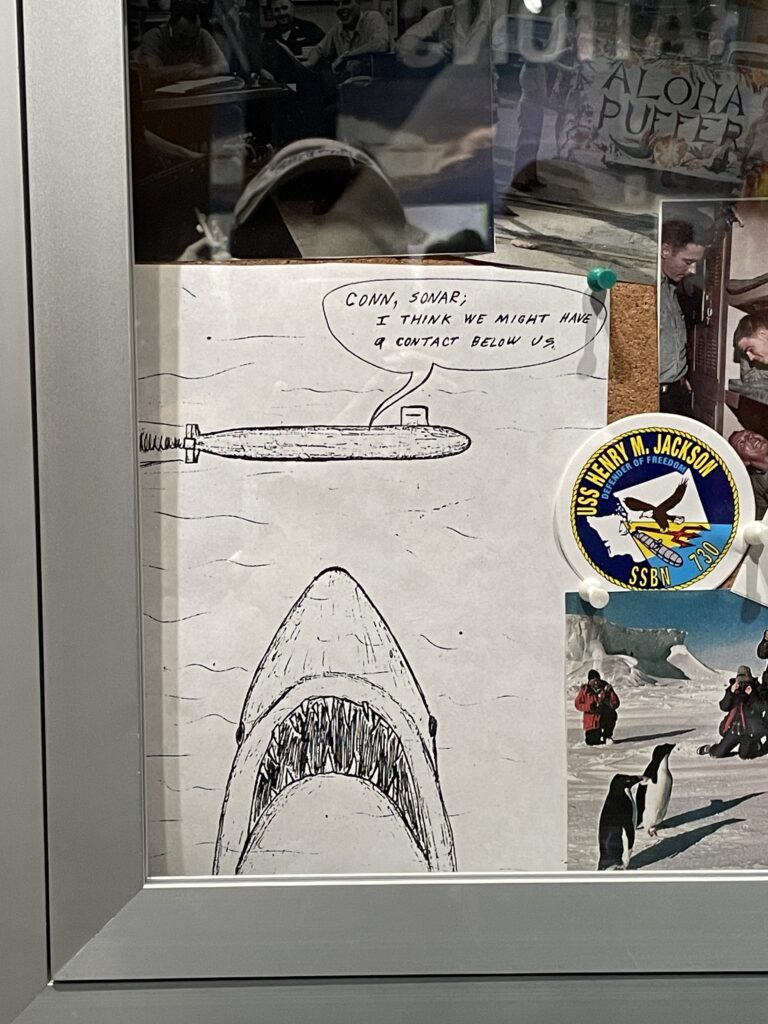 ALOHA
PUFFER
CONN, SONAR;
I THINK WE MIGHT HAVE
a CONTACT BELOW US.
USS HENRY M. JACKSON
DEFENDER OF FREEDOM
SSBN 730